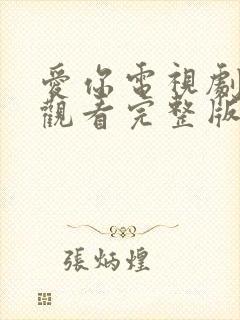 愛你電視劇
觀看完整版
張炳煌